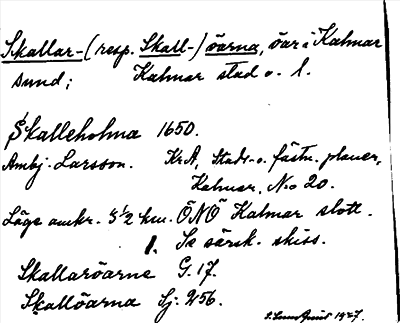 Skallar-(resp. Skall-)öarna, öar i Kalmar
sund; Kalmar stad o. l.
Skalleholma 1650.
Ambj. Larsson. Kr.A, Stads- o. fästn. planer,
Kalmar, No 20.
Läge omkr. 3 1/2 km. ÖNÖ Kalmar slott.
1. Se särsk. skiss.
Skallaröarne G. 17.
Skallöarna Sj. 256.
1927.